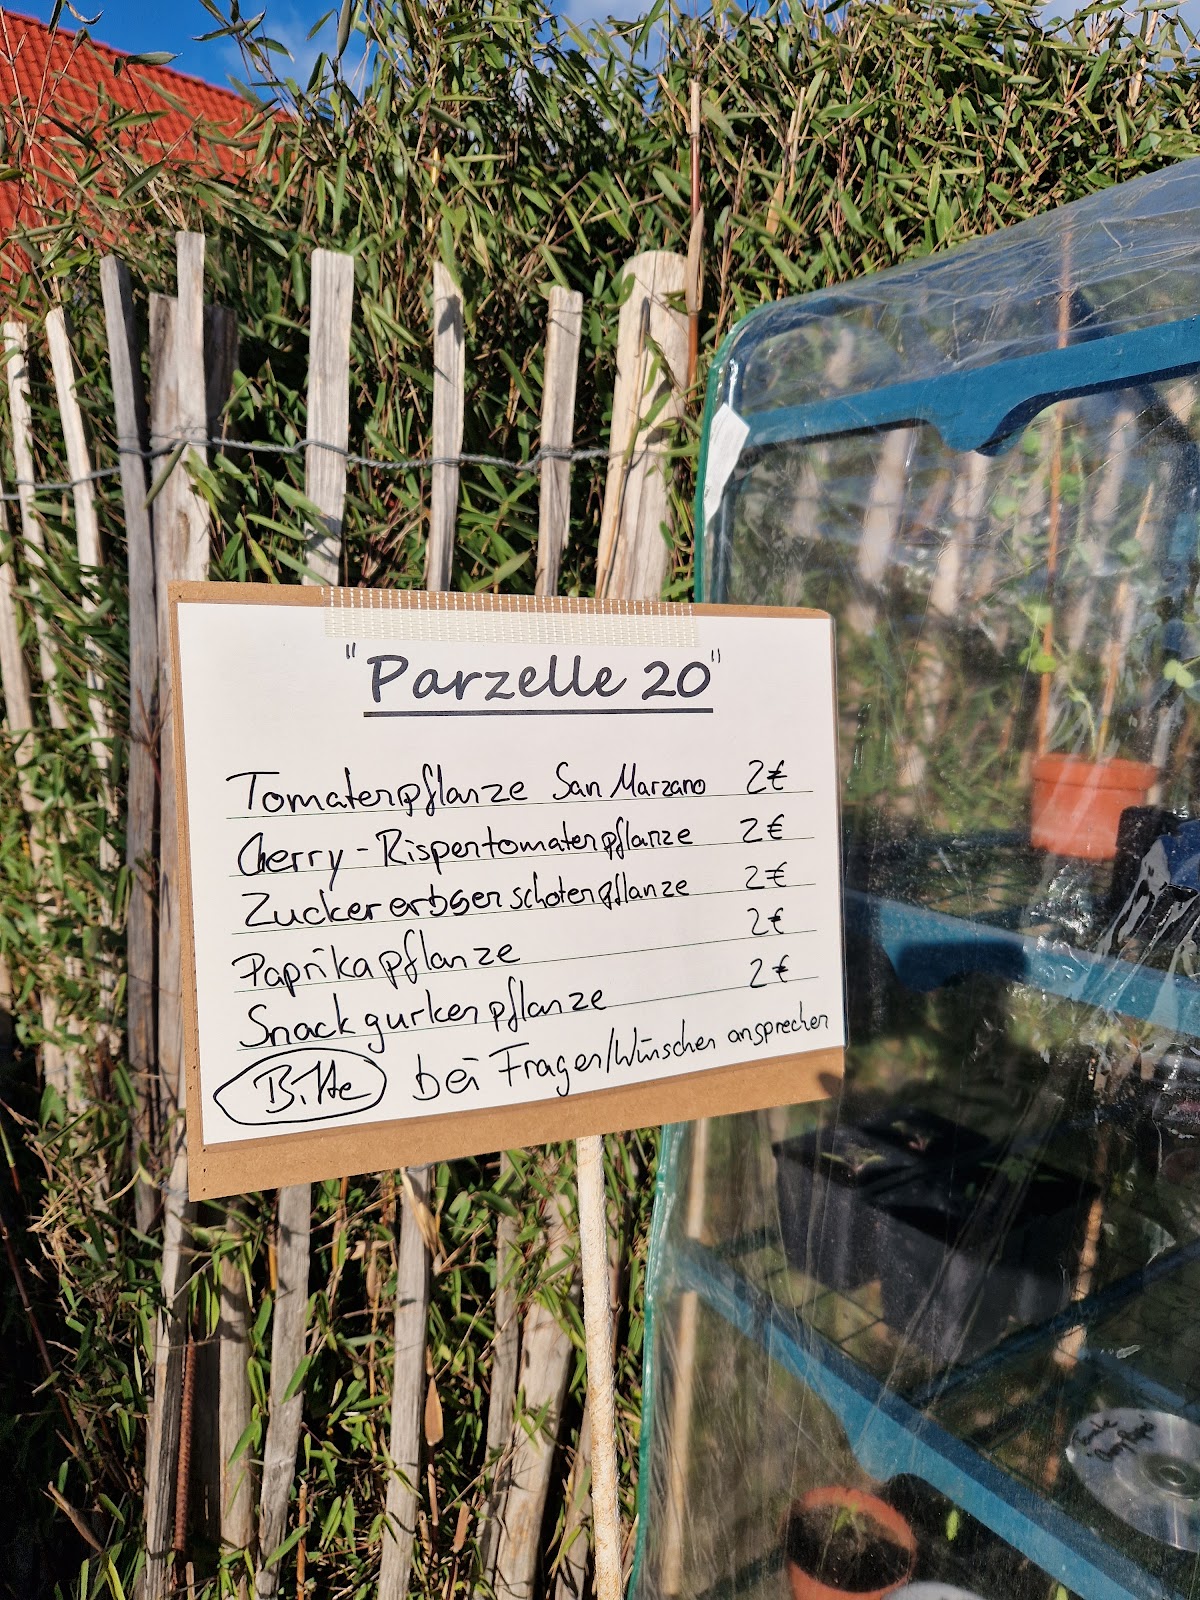 "Parzelle 20"
Tomatenpflanze San Marzano 2€
Cherry-Rispentomatenpflanze 2€
Zuckererbsenschotenpflanze 2€
Paprikapflanze 2€
Snackgurkenpflanze 2€
Bitte bei Fragen/Wünschen ansprechen